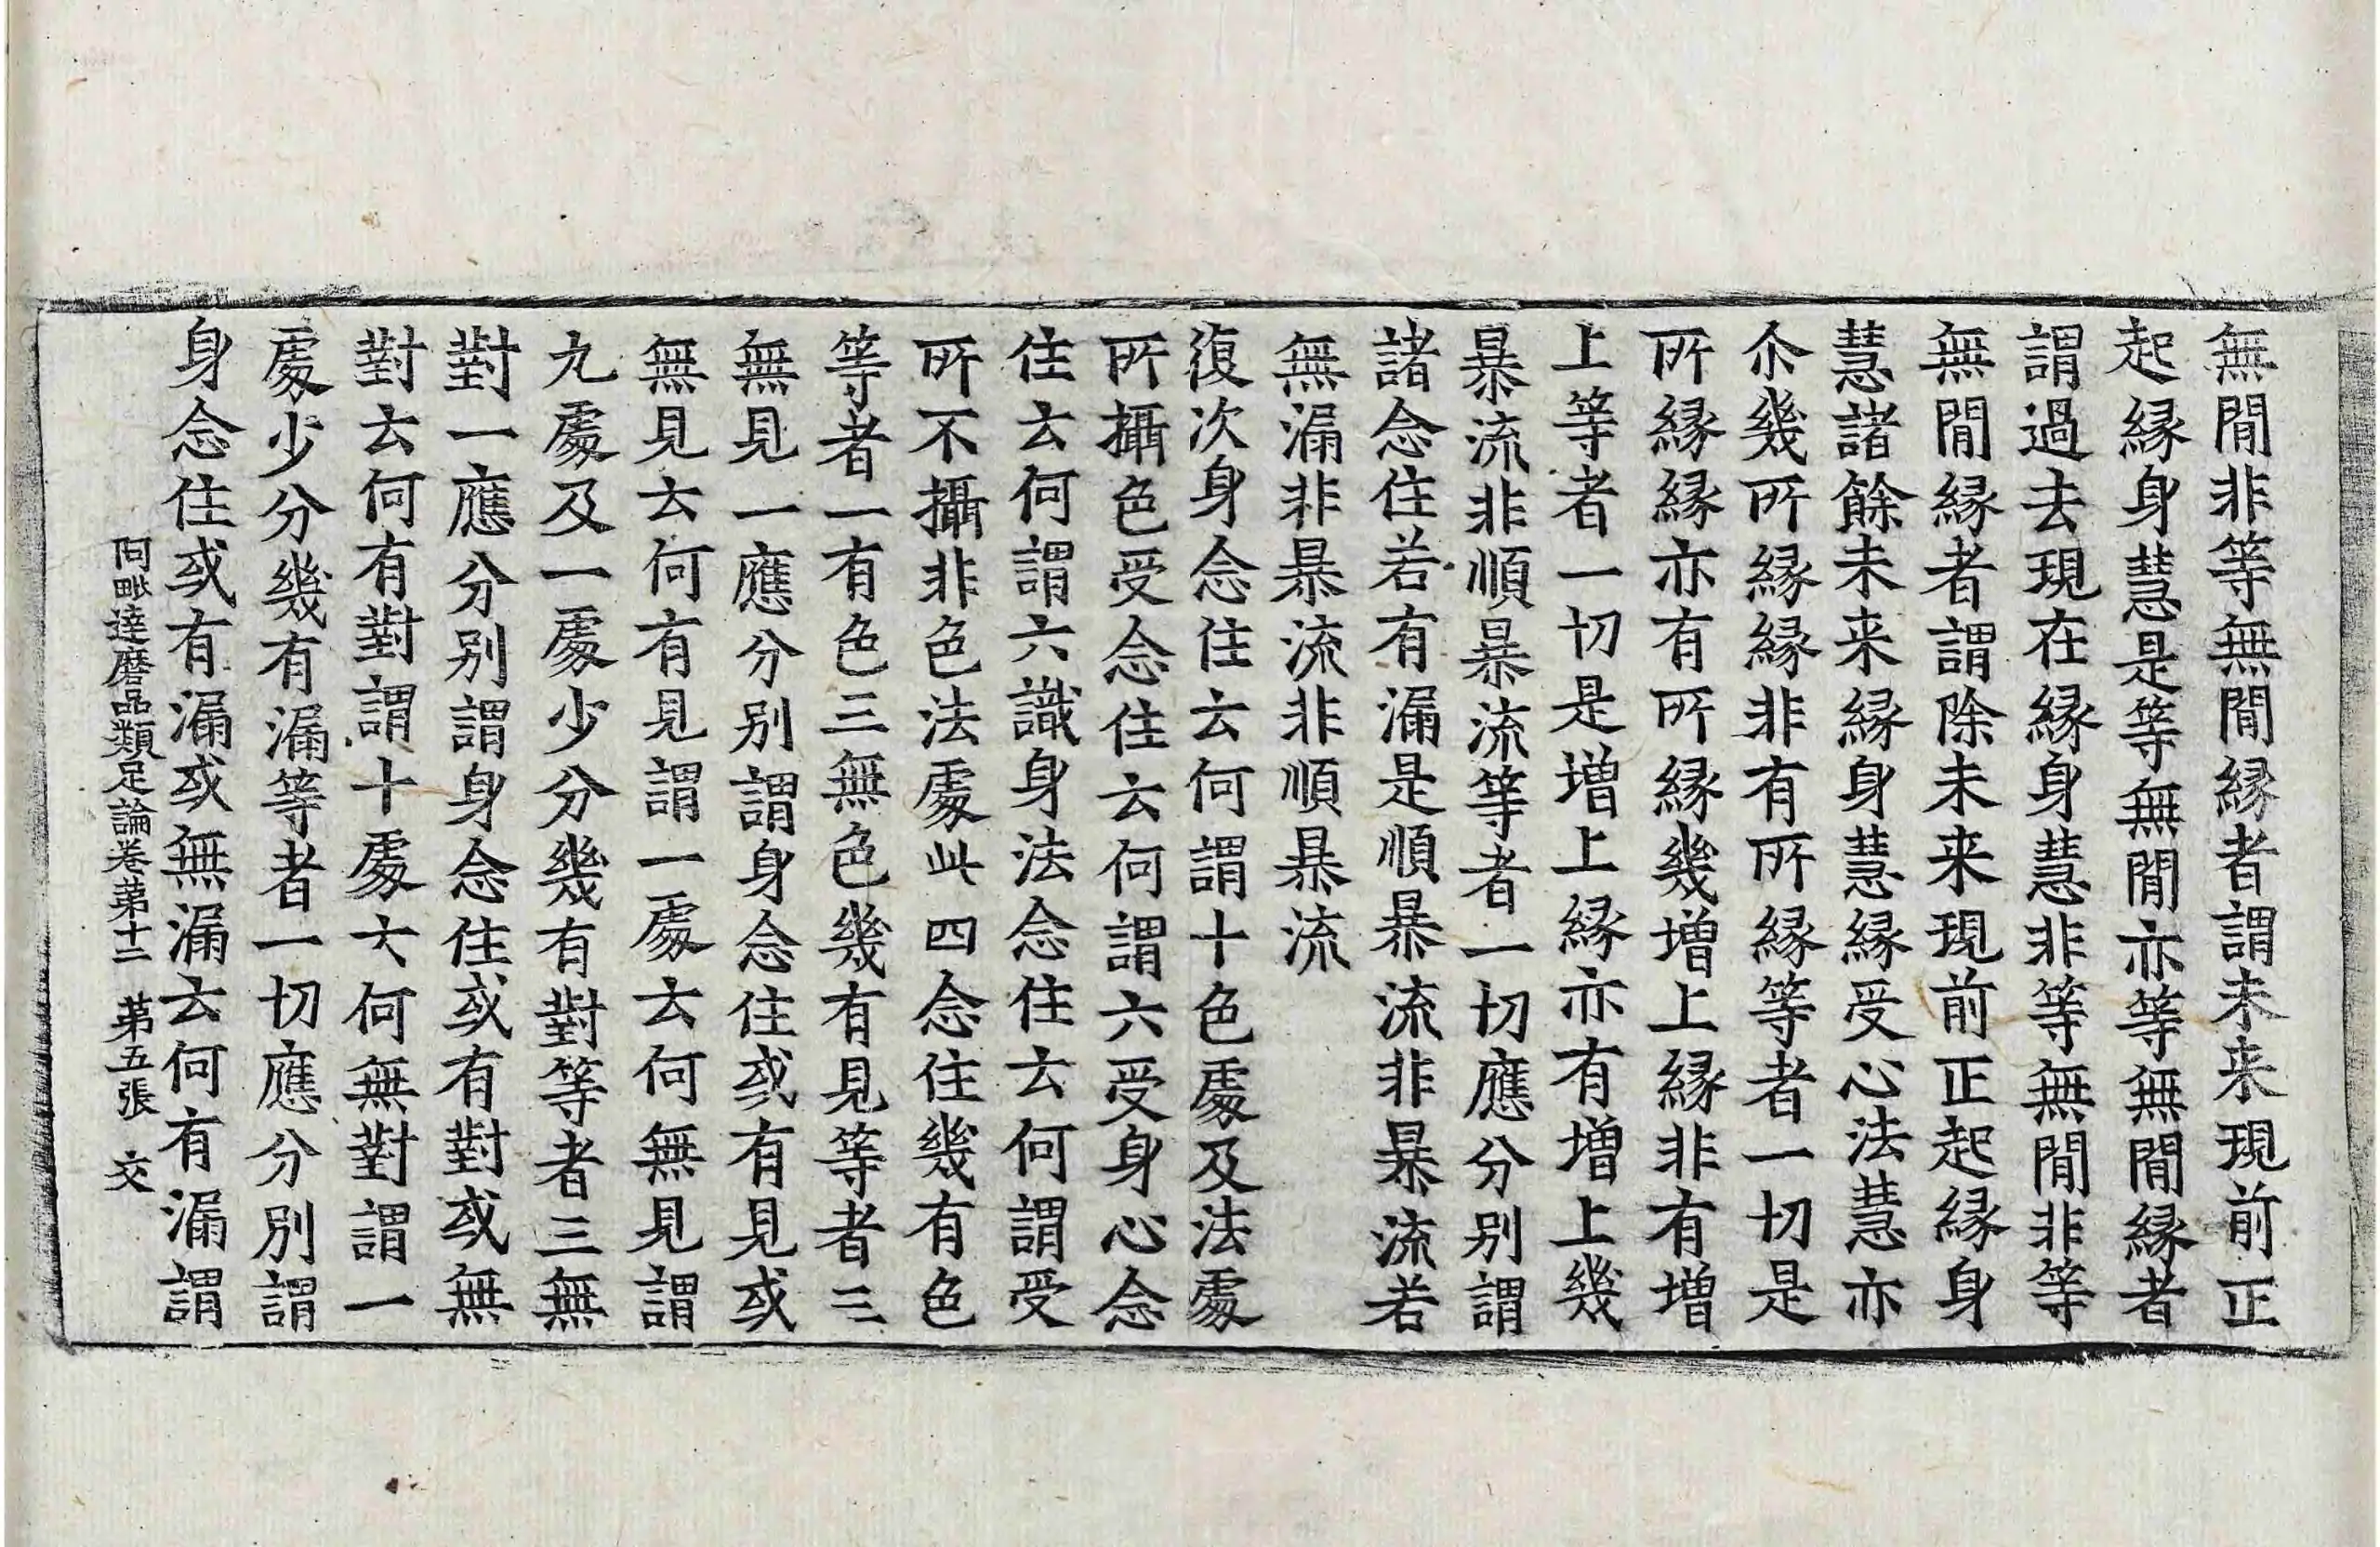 無閒非等無閒縁者謂未来現前正
起縁身慧是等無閒亦等無閒縁者
謂過去現在縁身慧非等無閒非等
無閒縁者謂除未来現前正起縁身
慧諸餘未来縁身慧縁受心法慧亦
尒幾所縁縁非有所縁等者一切是
所縁縁亦有所縁幾増上縁非有増
上等者一切是増上縁亦有増上幾
暴流非順暴流等者一切應分别謂
諸念住若有漏是順暴流非暴流若
無漏非暴流非順暴流
復次身念住云何謂十色處及法處
所攝色受念住云何謂六受身心念
住云何謂六識身法念住云何謂受
所不攝非色法處此四念住幾有色
等者一有色三無色幾有見等者三
無見一應分別謂身念住或有見或
無見云何有見謂一處云何無見謂
九處及一處少分幾有對等者三無
對一應分别謂身念住或有對或無
對云何有對謂十處云何無對謂一
處少分幾有漏等者一切應分別謂
身念住或有漏或無漏云何有漏謂
阿毗達磨品類足論卷第十二 第五張 交